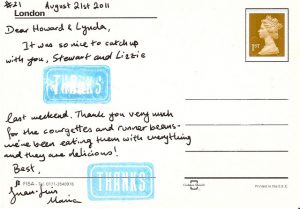 #21 August 21st 2011
London
1ST
Dear Howard & Lynda,
It was so nice to catch up
with you, Stewart and Lizzie
THANKS
last weekend. Thank you very much
for the courgettes and runner beans-
we've been eating them with everything
and they are delicious!
Best,
THANKS
Juan-Luis
Maria
PISA - Tel. 0171-2840916
Printed in the E.E.C.